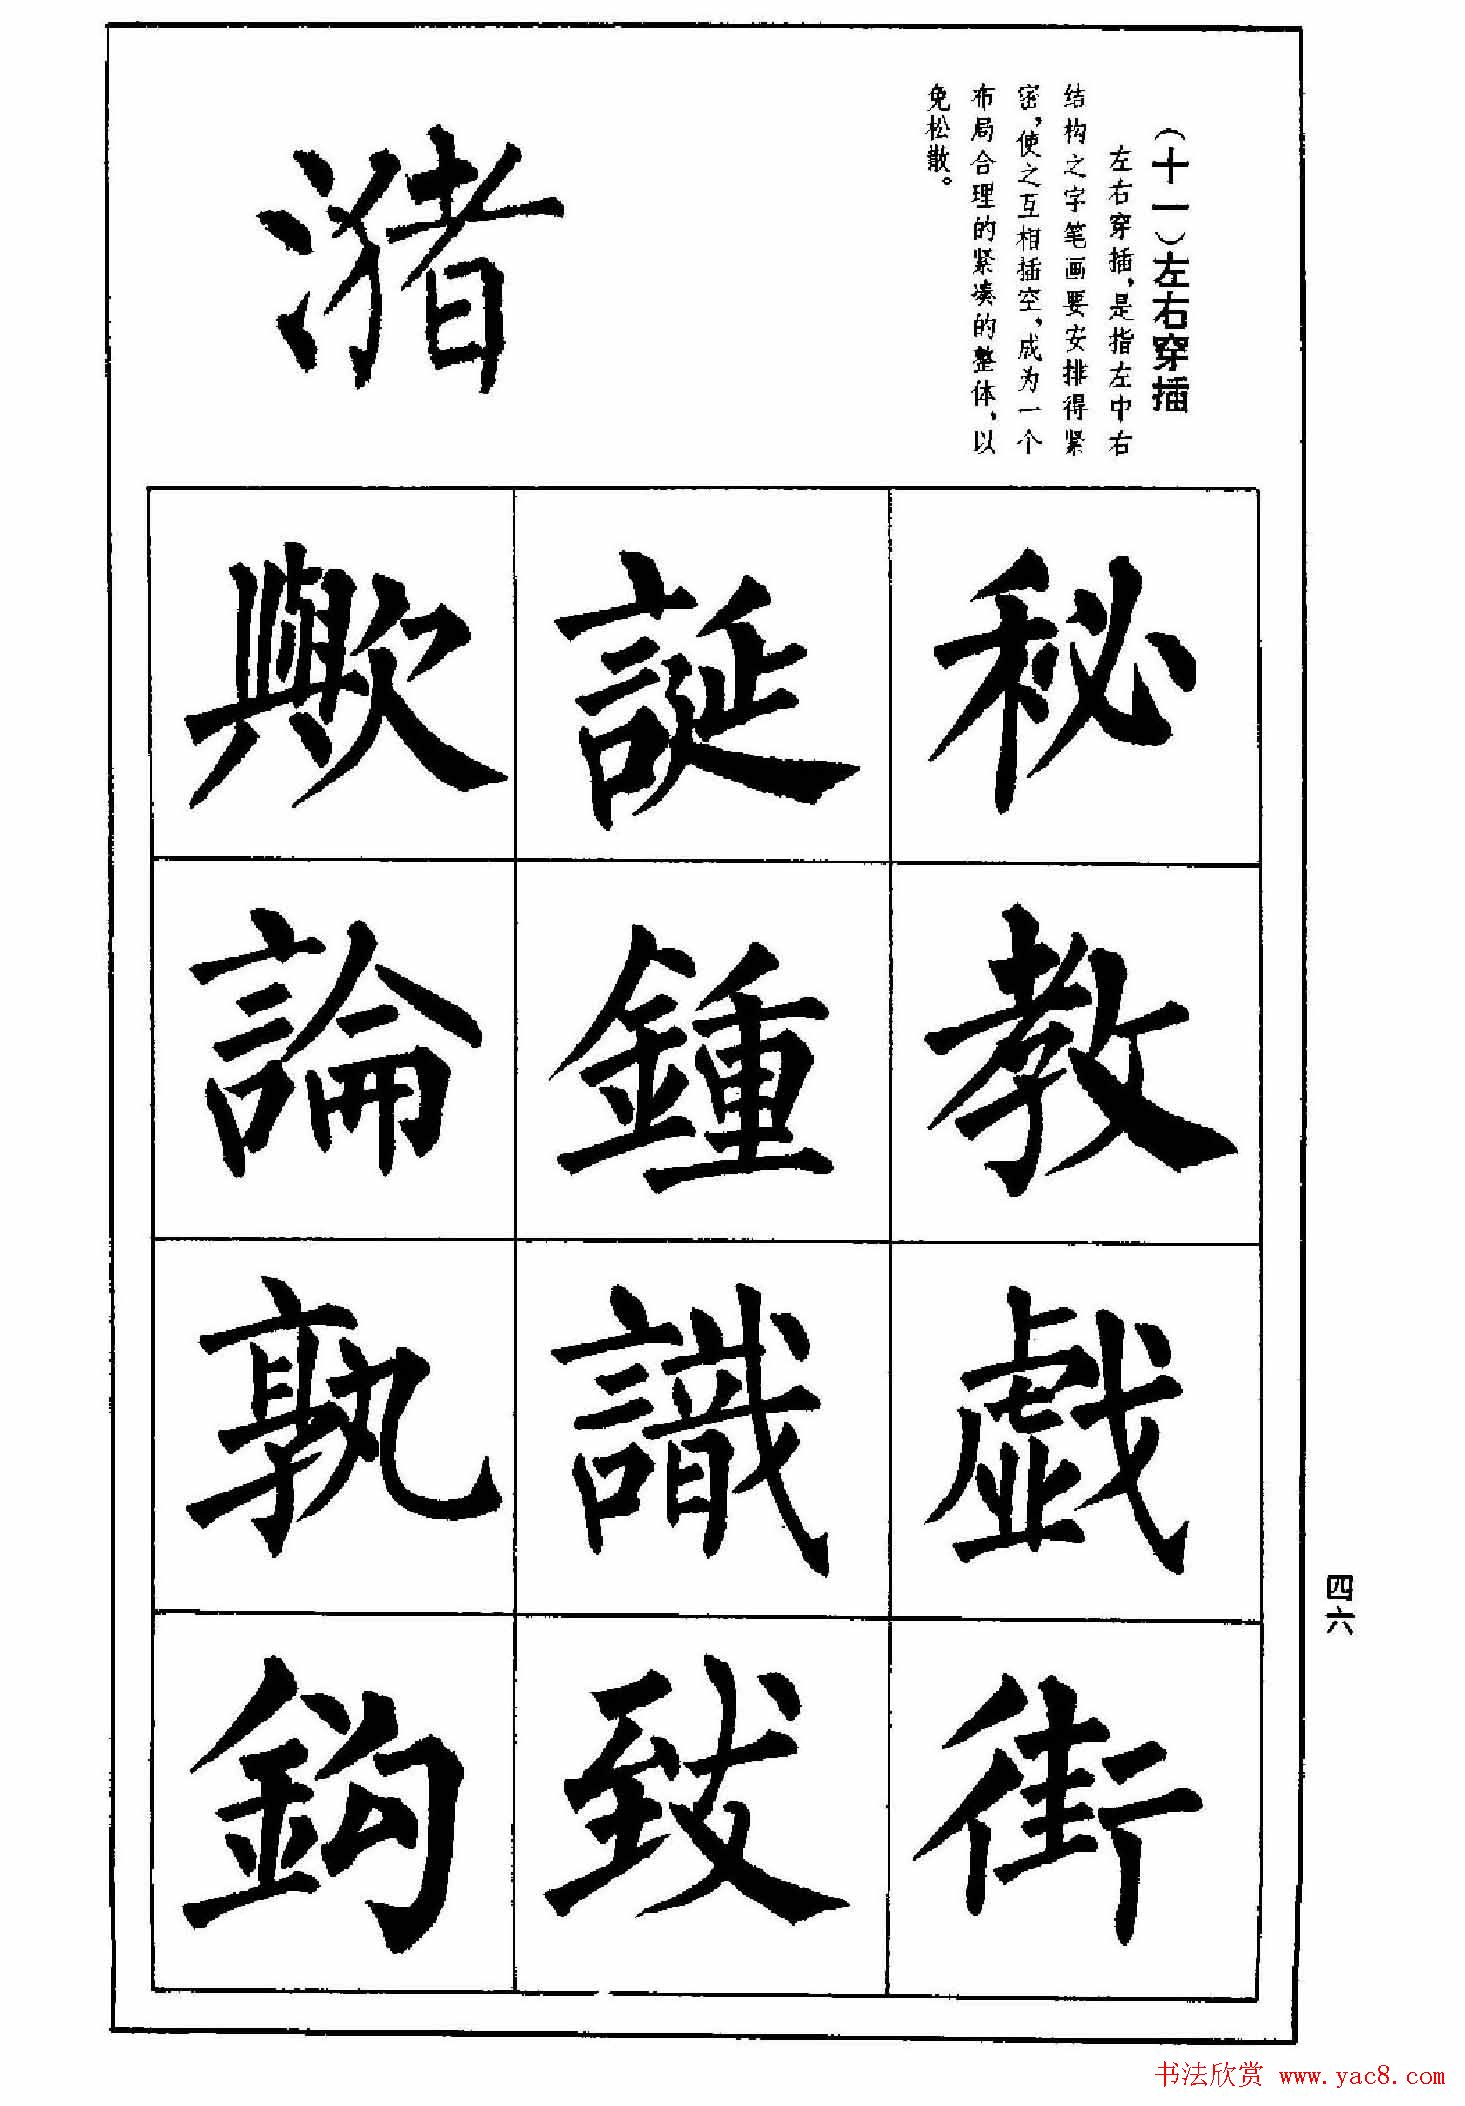 （十一）左右穿插
左右穿插，是指左中右
结构之字笔画要安排得紧
密，使之互相插空，成为一个
布局合理的紧凑的整体，以
免松散。
潴
秘教戯街
誕鍾識致
歟論孰鈎
四六
书法欣赏 www.yac8.com